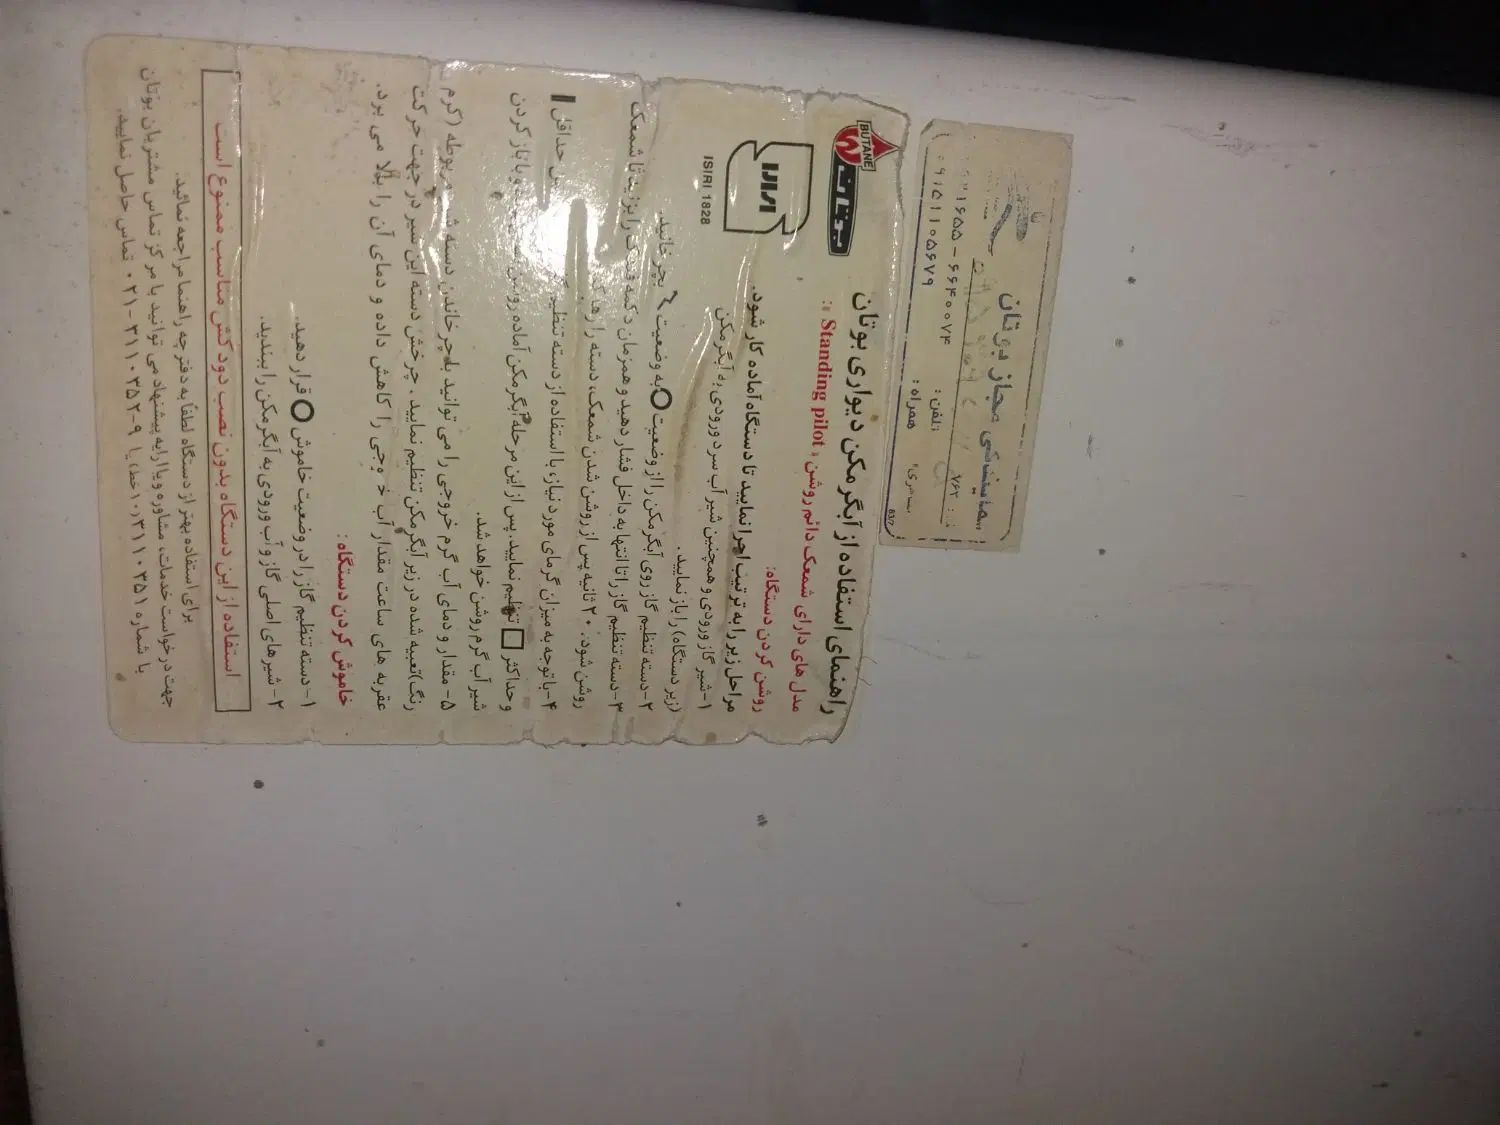 نمایندگی مجاز بوتان
تلفن: ۶۶۴۰۰۷۴
همراه: ۰۹۱۵۱۱۰۵۶۷۹
837
BUTANE
بوتان
ISIRI 1828
راهنمای استفاده از آبگرمکن دیواری بوتان
مدل های دارای شمعک دائم روشن « Standing pilot »:
روشن کردن دستگاه:
مراحل زیر را به ترتیب اجرا نمایید تا دستگاه آماده کار شود.
۱- شیر گاز ورودی و همچنین شیر آب سرد ورودی به آبگرمکن
(زیر دستگاه) را باز نمایید.
۲- دسته تنظیم گاز روی آبگرمکن را از وضعیت به وضعیت بچرخانید.
۳- دسته تنظیم گاز را تا انتها به داخل فشار دهید و همزمان دکمه فندک را بزنید تا شمعک
روشن شود. ۲۰ ثانیه پس از روشن شدن شمعک، دسته را رها
۴- با توجه به میزان گرمای مورد نیاز، با استفاده از دسته تنظیم حداقل
و حداکثر تنظیم نمایید. پس از این مرحله آبگرمکن آماده روشن و با باز کردن
شیر آب گرم روشن خواهد شد.
۵- مقدار و دمای آب گرم خروجی را می توانید با چرخاندن دسته شیر مربوطه (کرم
رنگ) تعبیه شده در زیر آبگرمکن تنظیم نمایید. چرخش دسته این شیر در جهت حرکت
عقربه های ساعت مقدار آب خروجی را کاهش داده و دمای آن را بالا می برد.
خاموش کردن دستگاه:
۱- دسته تنظیم گاز را در وضعیت خاموش قرار دهید.
۲- شیرهای اصلی گاز و آب ورودی به آبگرمکن را ببندید.
استفاده از این دستگاه بدون نصب دودکش مناسب ممنوع است
برای استفاده بهتر از دستگاه لطفاً به دفترچه راهنما مراجعه نمائید.
جهت درخواست خدمات، مشاوره و یا ارایه پیشنهاد می توانید با مرکز تماس مشتریان بوتان
با شماره ۳۱۱۰۳۵۱ (۱۰ خط) یا ۹-۳۱۱۰۳۵۲-۰۲۱ تماس حاصل نمایید.